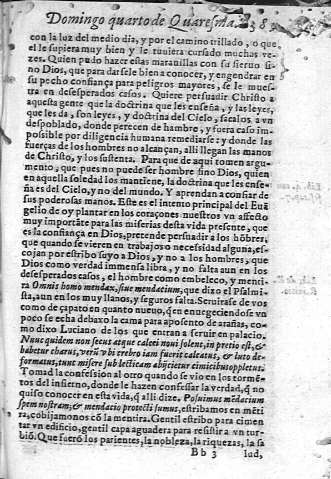 Domingo quarto de Quaresma. 8
con la luz del medio dia, y por el camino trillado, o que
el le supiera muy bien y le tuuiera cursado muchas ve-
zes. Quien pudo hazer estas marauillas con su sieruo si-
no Dios, que para darsele bien a conocer, y engendrar en
su pecho confiança para peligros mayores, se le mues-
tra en desesperados casos. Quiere persuadir Christo a
aquesta gente que la doctrina que les enseña, y las leyes,
que les da, son leyes, y doctrina del Cielo, sacalos a vn
despoblado, donde perecen de hambre, y fuera caso im-
possible por diligencia humana remediarse: y donde las
fuerças de los hombres no alcançan, alli llegan las manos
de Christo, y los sustenta. Para que de aqui tomen argu-
mento, que pues no puede ser hombre sino Dios, quien
en aquella soledad los mantiene, la doctrina que les ense-
ña es del Cielo, y no del mundo. Y aprendan a confiar de
sus poderosas manos. Este es el intento principal del Euã
gelio de oy plantar en los coraçones nuestros vn affecto
muy importãte para las miserias desta vida presente, que
es la confiança en Dios, pretende persuadir a los hõbres,
que quando se vieren en trabajos o necessidad alguna, es-
cojan por estribo suyo a Dios, y no a los hombres, que
Dios como verdad immensa libra, y no falta aun en los
desesperados casos, el hombre como embeleco, y menti
ra Omnis homo mendax, siue mendacium, que dixo el Psalmi-
sta, aun en los muy llanos, y seguros falta. Seruirase de vos
como de çapato en quanto nueuo, q̃ en enuegeciendose vn
poco se echa debaxo la cama para aposento de arañas, co-
mo dixo Luciano de los que entran a seruir en palacio.
Nunc quidem non secus atque calcei noui solent, in pretio est, &
babetur charus, verũ vbi crebro iam fuerit calcatus, & luto de-
formatus, tunc misere sub lecticam abijcietur cimicibus oppletus.
Tomad la confession al otro quando se vio en los tormẽ-
tos del infierno, donde le hazen confessar la verdad, q̃ no
quiso conocer en esta vida, q̃ alli dize. Posuimus mẽdacium
spem nostram, & mendacio protecti sumus, estribamos en mẽti
ra, cobijamonos cõ la mentira. Gentil estribo para cimen
tar vn edificio, gentil capa aguadera para resistir a vn tur-
biõ. Que fuerõ los parientes, la nobleza, la riquezas, la sa
B b 3 lud,